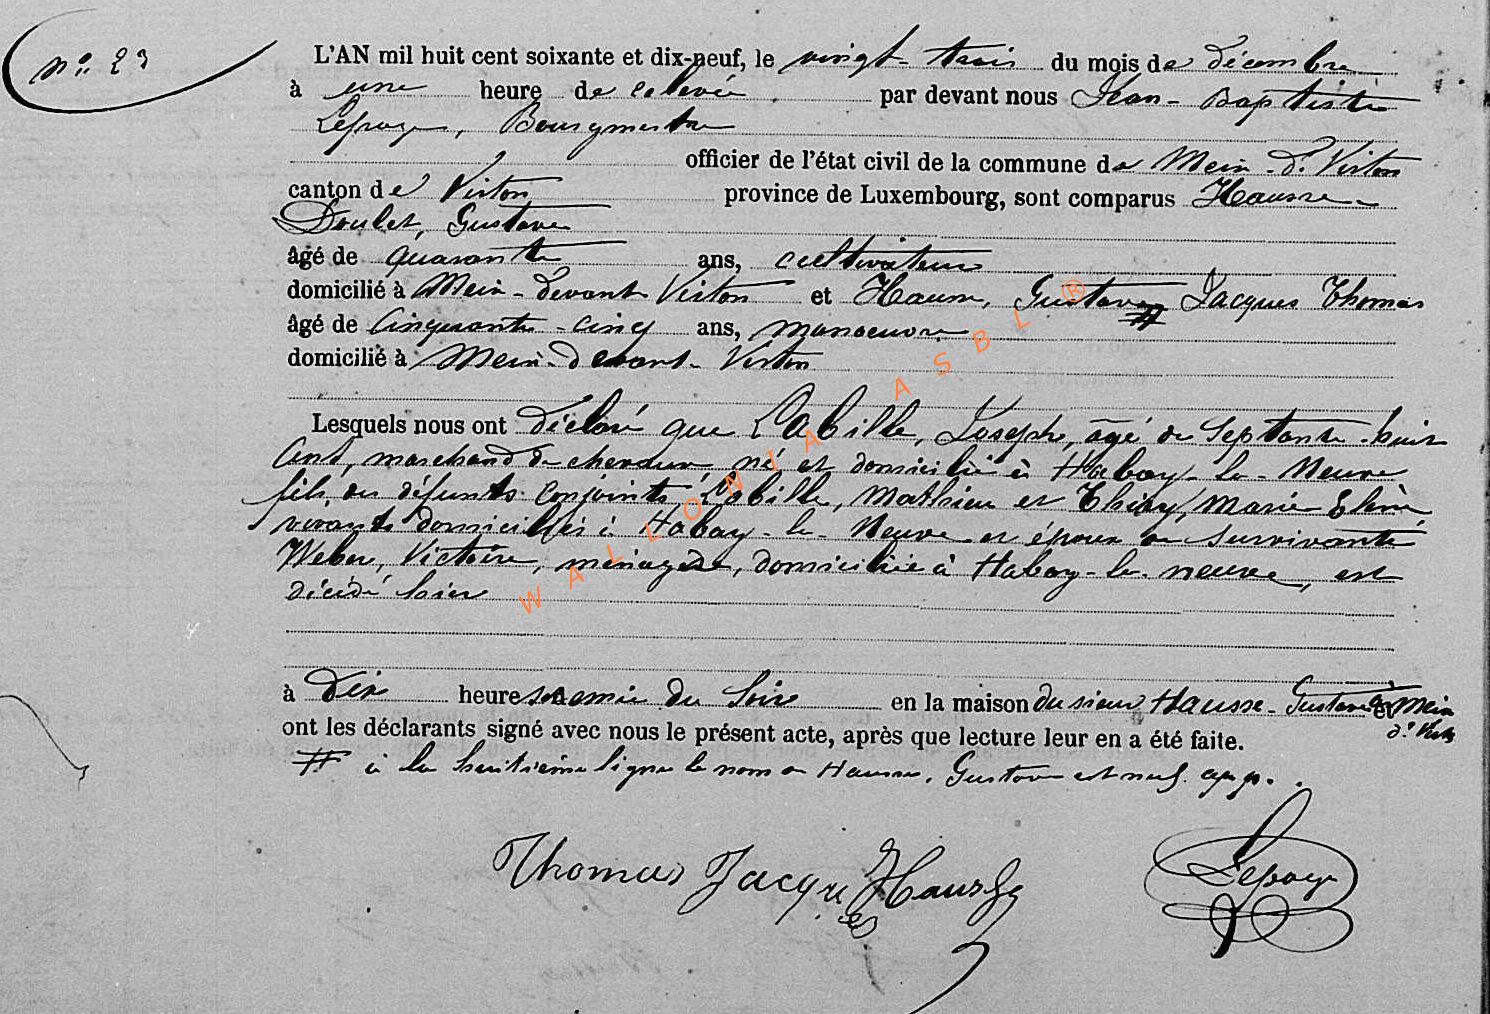 n° 23
L'AN mil huit cent soixante et dix-neuf, le vingt-trois du mois de décembre
à une heure de relevée par devant nous Jean-Baptiste
Lepage, Bourgmestre
officier de l'état civil de la commune de Meix-dt Virton
canton de Virton province de Luxembourg, sont comparus Hausse
Doulet, Gustave
âgé de quarante ans, cultivateur
domicilié à Meix-devant Virton et Hausse, Gustave # Jacques Thomas
âgé de Cinquante-cinq ans, manoeuvre
domicilié à Meix-devant-Virton
Lesquels nous ont déclaré que Labille, Joseph, âgé de Septante-huit
ans, marchand de chevaux né et domicilié à Habay-la-Neuve
fils des défunts conjoints Labille, Mathieu et Thiry, Marie
vivants domiciliés à Habay-la-Neuve et époux de survivante
Weber, Victoire, ménagère, domiciliée à Habay-la-neuve, est
décédé hier
à Dix heures et demie du Soir en la maison du sieur Hausse-Gustave à Meix
dt Virton et
ont les déclarants signé avec nous le présent acte, après que lecture leur en a été faite.
# à la huitième ligne le nom de Hausse, Gustave est nul.
Thomas Jacques Hausse
Lepage
WALLONIA ASBL ®